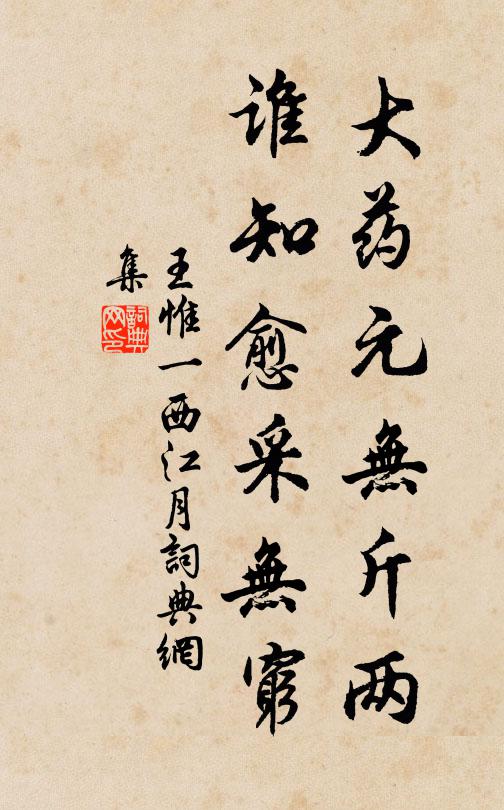 大药元無斤两
谁知愈采無窮
王惟一西江月詞典網
集
詞典網印